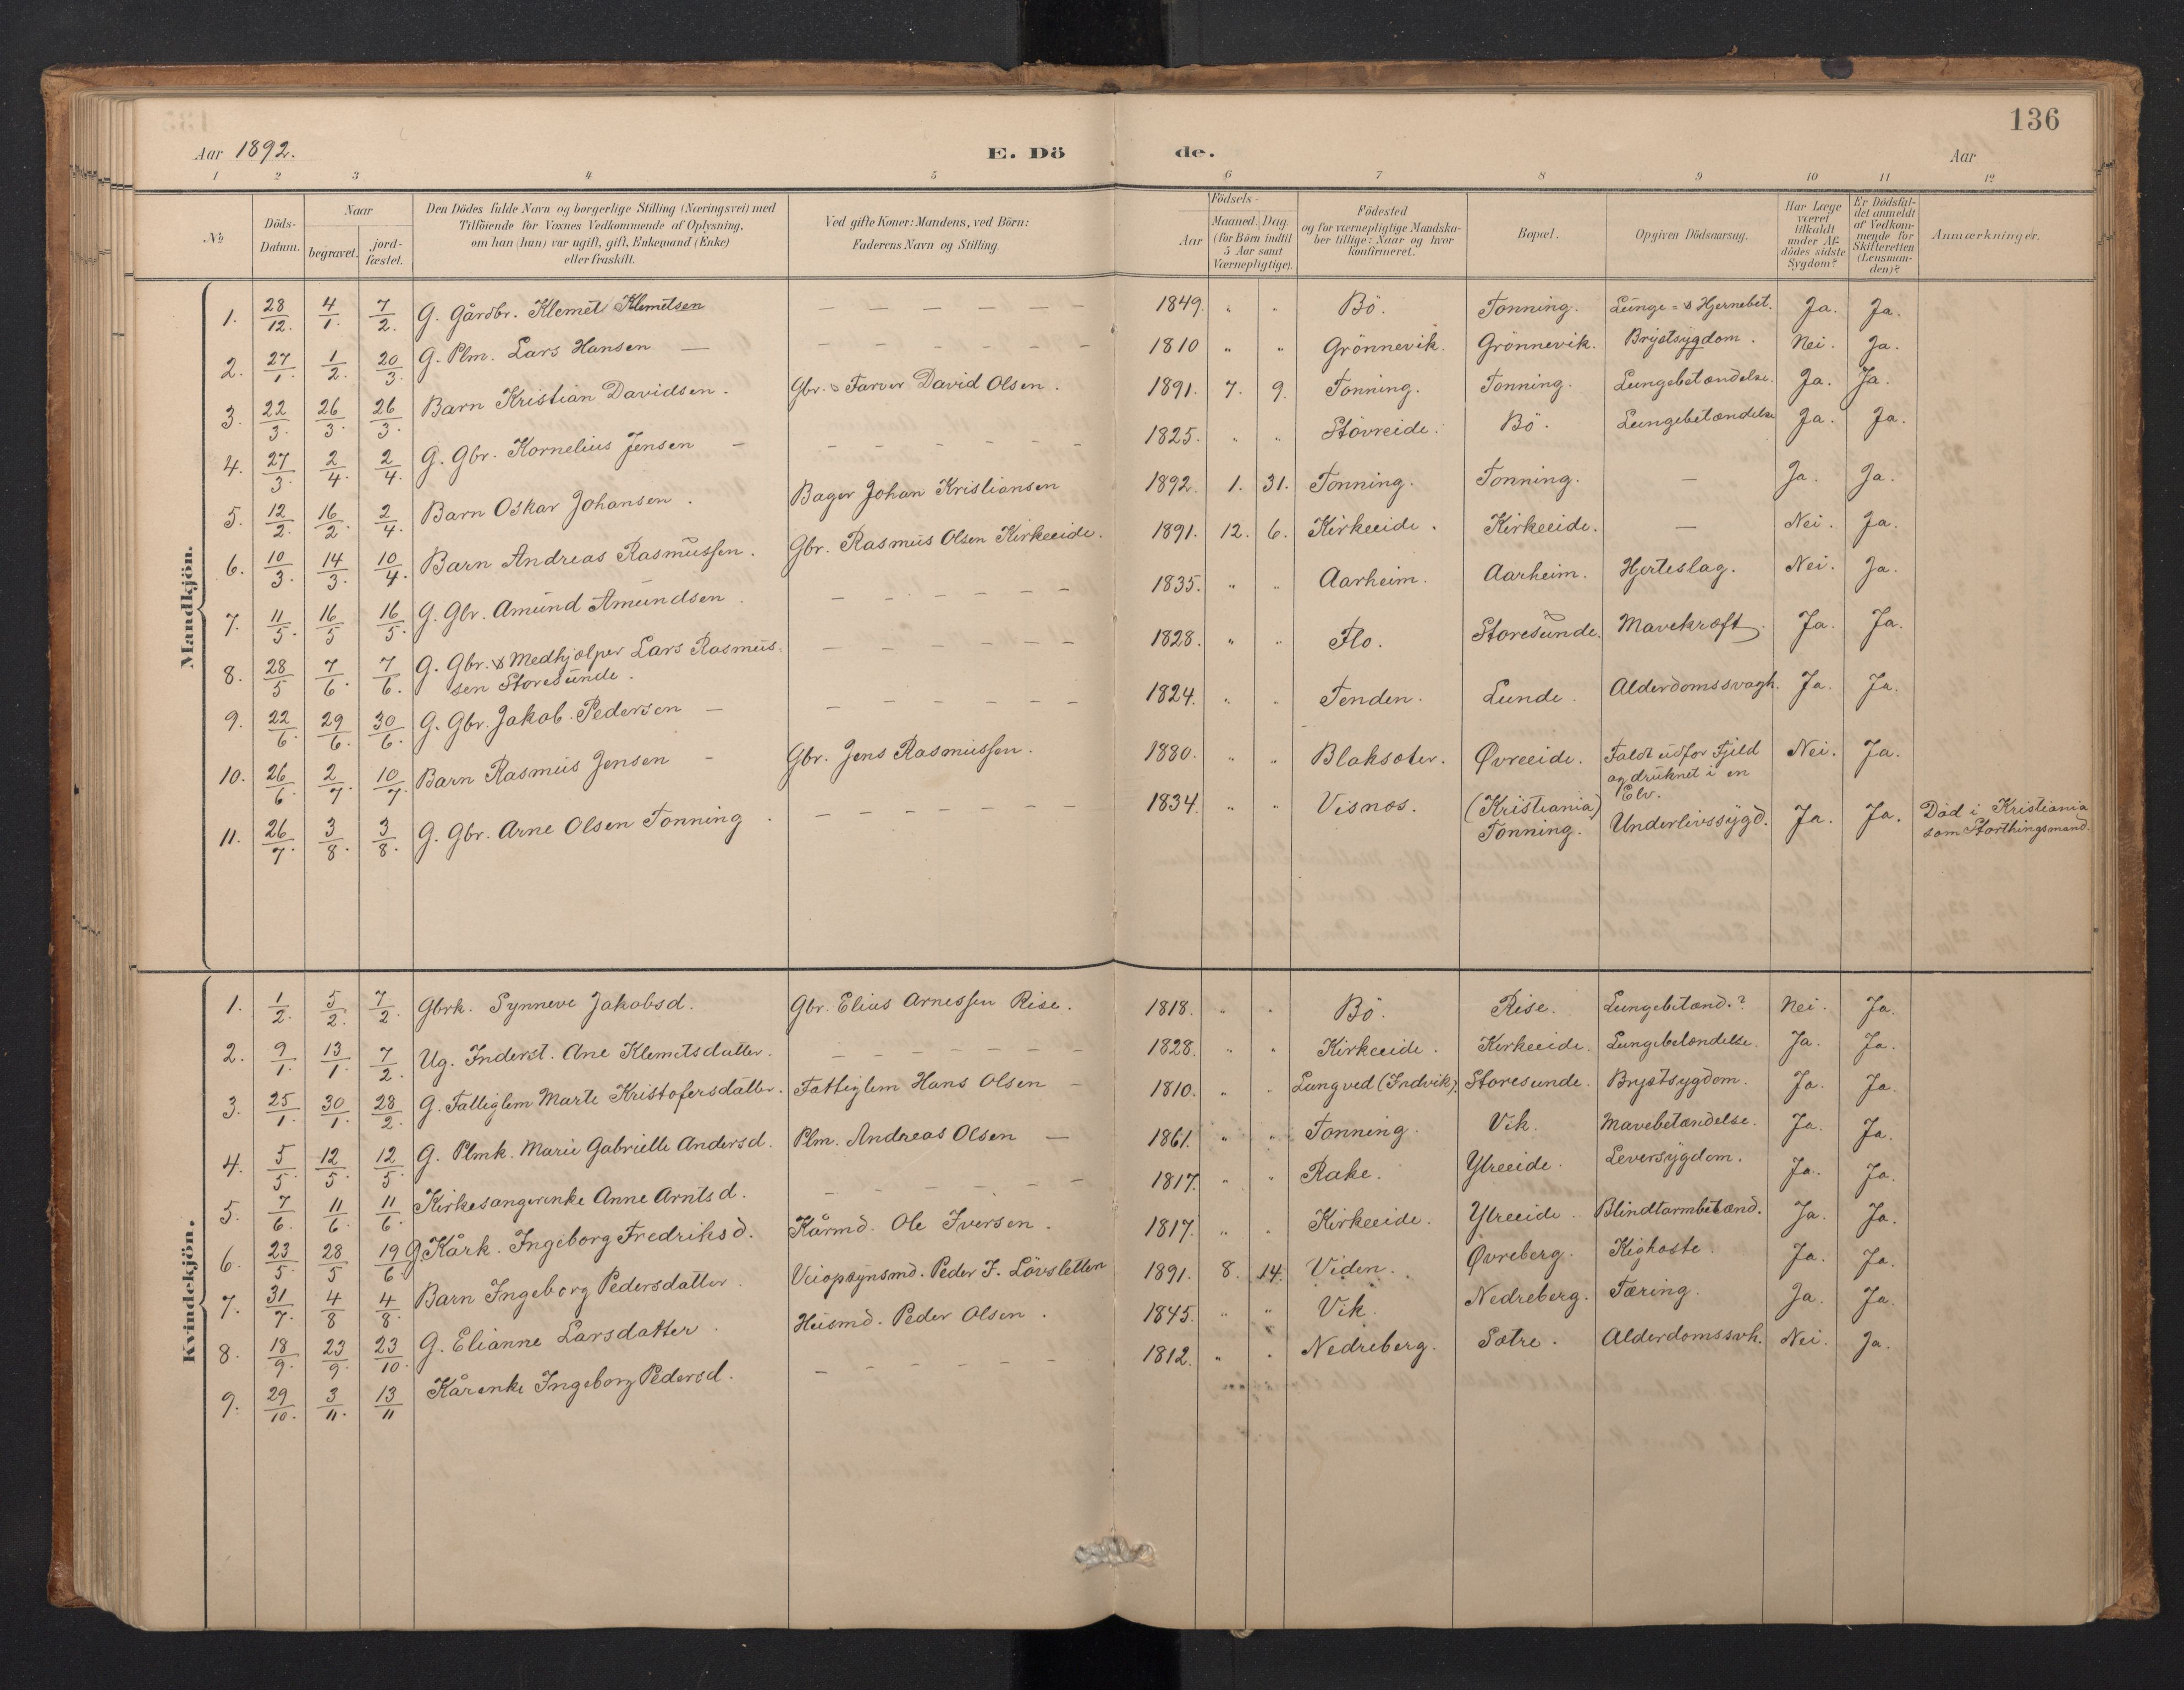 136
Aar 1892. E. Dö de. Aar
1 2 3 4 5 6 7 8 9 10 11 12
No
Döds-Datum.
Naar
begravet.
jord-fæstet.
Den Dödes fulde Navn og borgerlige Stilling (Næringsvei) med
Tilföiende for Voxnes Vedkommende af Oplysning,
om han (hun) var ugift, gift, Enkemand (Enke)
eller fraskilt.
Ved gifte Koner: Mandens, ved Börn:
Faderens Navn og Stilling
Födsels-
Aar
Maaned. Dag.
(for Börn indtil
5 Aar samt
Værnepligtige).
Födested
og for værnepligtige Mandska-
ber tillige: Naar og hvor
konfirmeret.
Bopæl.
Opgiven Dödsaarsag.
Har Læge
været
tilkaldt
under Af-
dödes sidste
Sygdom?
Er Dödsfal-
det anmeldt
af Vedkom-
mende for
Skifteretten
(Lensman-
den)?
Anmærkninger.
Mandkjön.
1. 28/12. 4/1. 7/2. G. Gårdbr. Klemet Klemetsen — — — — — — 1849. " " Bö. Tonning. Lunge- & Hjernebet. Ja. Ja.
2. 27/1. 1/2. 20/3. G. Plm. Lars Hansen — — — — — — — 1810 " " Grönnevik. Grönnevik. Brystsygdom. Nei. Ja.
3. 22/3. 26/3. 26/3. Barn Kristian Davidsen. Gbr. & Farver David Olsen. 1891. 7. 9. Tonning. Tonning. Lungebetændelse. Ja. Ja.
4. 27/3. 2/4. 2/4. G. Gbr. Kornelius Jensen — — — — — — — 1825. " " Stövreide. Bö. Lungebetændelse Ja. Ja.
5. 12/2. 16/2. 2/4. Barn Oskar Johansen. Bager Johan Kristiansen 1892. 1. 31. Tonning. Tonning. — Ja. Ja.
6. 10/3. 14/3. 10/4. Barn Andreas Rasmussen. Gbr. Rasmus Olsen Kirkeeide. 1891. 12. 6. Kirkeeide. Kirkeeide. — Nei. Ja.
7. 11/5. 16/5 16/5. G. Gbr. Amund Amundsen. — — — — — — 1835. " " Aarheim. Aarheim. Hjerteslag. Nei. Ja.
8. 28/5 7/6. 7/6. G. Gbr. & Medhjælper Lars Rasmus-
sen Storesunde. — — — — — — 1828. " " Flo. Storesunde. Mavekræft. Ja. Ja.
9. 22/6. 29/6. 30/6. G. Gbr. Jakob Pedersen — — — — — — — 1824. " " Tenden. Lunde. Alderdomssvagh. Ja. Ja.
10. 26/6. 2/7 10/7. Barn Rasmus Jensen — Gbr. Jens Rasmussen. 1880. " " Blaksæter. Øvreeide. Faldt udfor Fjeld
og druknet i en
Elv. Nei. Ja.
11. 26/7 3/8. 3/8. G. Gbr. Arne Olsen Tonning. — — — — — — 1834. " " Visnæs. (Kristiania)
Tonning. Underlivssygd. Ja. Ja. Död i Kristiania
som Storthingsmand.
Kvindekjön.
1. 1/2. 5/2. 7/2. Gbrk. Synneve Jakobsd. Gbr. Elius Arnessen Rise. 1818. " " Bö. Rise. Lungebetænd.? Nei. Ja.
2. 9/1. 13/1. 7/2. Ug. Inderst. Ane Klemetsdatter. — — — — — — 1828. " " Kirkeeide. Kirkeeide. Lungebetændelse. Ja. Ja.
3. 25/1. 30/1. 28/2. G. Fattiglem Marte Kristofersdatter. Fattiglem Hans Olsen — 1810. " " Lungved (Indvik). Storesunde. Brystsygdom. Ja. Ja.
4. 5/5. 12/5. 12/5. G. Plmk. Marie Gabrielle Andersd. Plm. Andreas Olsen — 1861. " " Tonning. Vik. Mavebetændelse. Ja. Ja.
5. 7/6. 11/6. 11/6. Kirkesangerenke Anne Arntsd. — — — — — — 1817. " " Rake. Ytreeide. Leversygdom. Ja. Ja.
6. 23/5. 28/5 19/6. G. Kårk. Ingeborg Fredriksd. Kårmd. Ole Iversen. 1817. " " Kirkeeide. Ytreeide. Blindtarmbetænd. Ja. Ja.
7. 31/7. 4/8 4/8. Barn Ingeborg Pedersdatter. Veiopsynsmd. Peder J. Lövsletten 1891. 8. 14. Viden. Øvreberg. Kighoste. Ja. Ja.
8. 18/9. 23/9. 23/10. G. Elianne Larsdatter. Husmd. Peder Olsen. 1845. " " Vik. Nedreberg. Tæring. Ja. Ja.
9. 29/10. 3/11. 13/11 Kårenke Ingeborg Pedersd. — — — — — — 1812. " " Nedreberg. Sætre. Alderdomssvh. Nei. Ja.